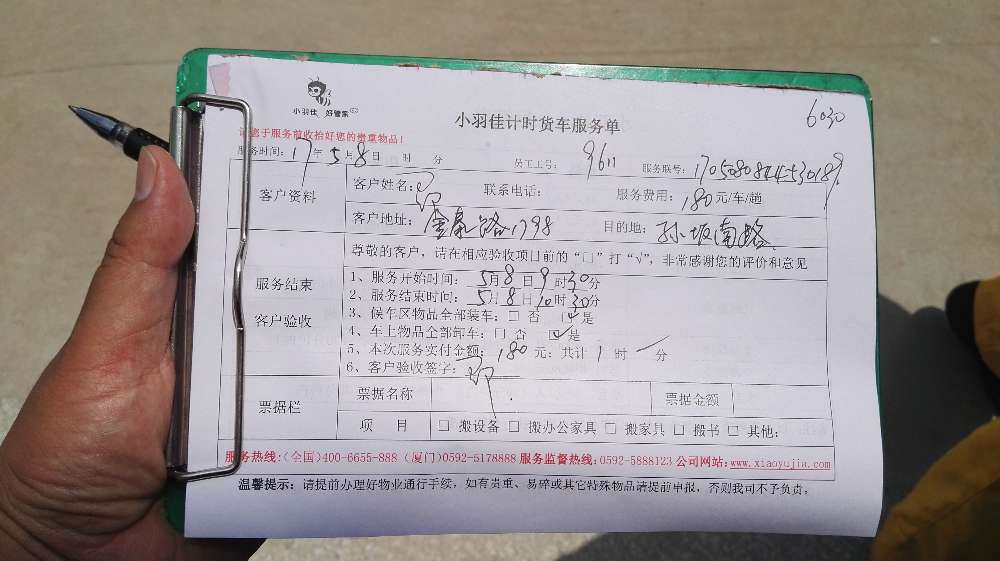 小羽佳 好管家
6030
小羽佳计时货车服务单
请您于服务前收拾好您的贵重物品！
服务时间：17年5月8日 时 分 员工工号：9611 服务联号：
客户资料
客户姓名： 联系电话： 服务费用：180元/车/趟
客户地址：金泰路1798 目的地：孙坂南路
服务结束
客户验收
尊敬的客户，请在相应验收项目前的“□”打“√”，非常感谢您的评价和意见
1、服务开始时间：5月8日9时30分
2、服务结束时间：5月8日10时30分
3、候车区物品全部装车：□ 否 ☑是
4、车上物品全部卸车：□ 否 ☑是
5、本次服务实付金额：180元；共计1时 一分
6、客户验收签字：
票据栏
票据名称 票据金额
项 目 □ 搬设备 □ 搬办公家具 □ 搬家具 □ 搬书 □ 其他：
服务热线：（全国）400-6655-888（厦门）0592-5178888 服务监督热线：0592-5888123 公司网站：www.xiaoyujia.com
温馨提示：请提前办理好物业通行手续，如有贵重、易碎或其它特殊物品请提前申报，否则我司不予负责，